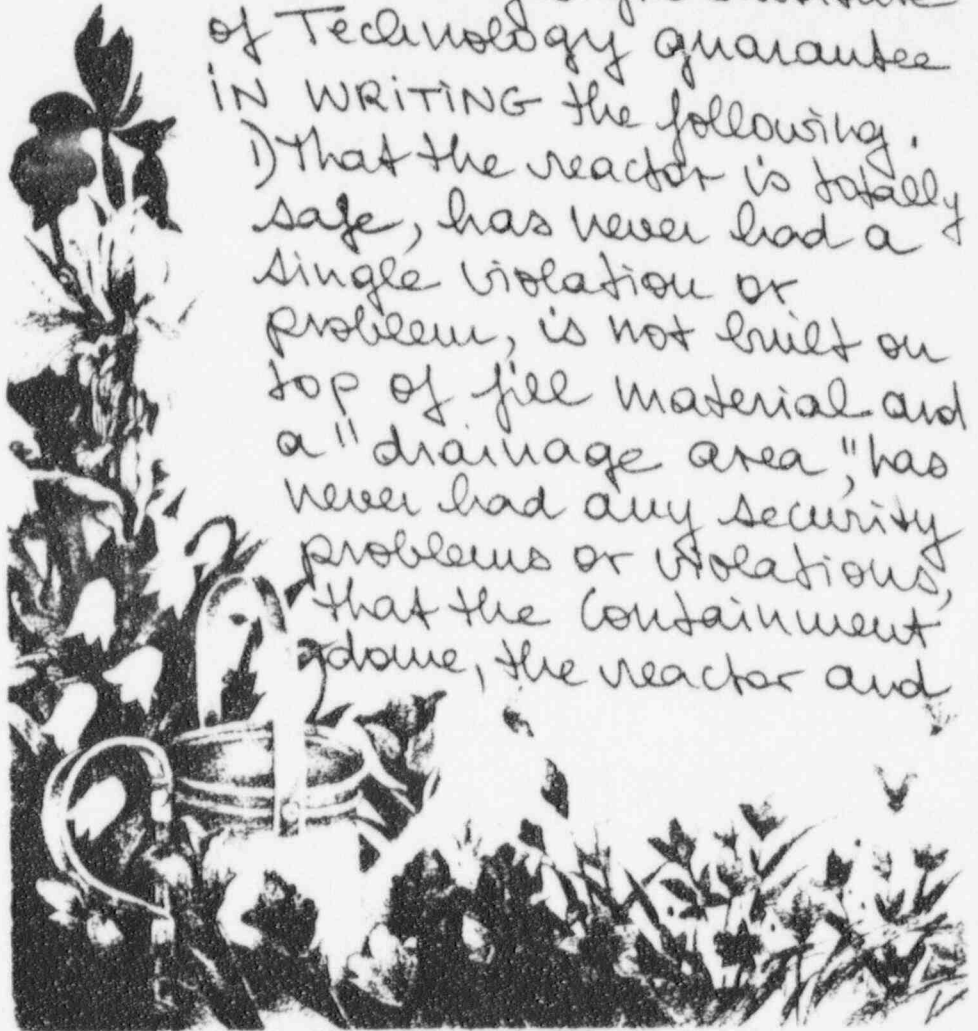 of Technology guarantee
IN WRITING the following.
1) That the reactor is totally
safe, has never had a
single violation or
problem, is not built on
top of fill material and
a "drainage area", has
never had any security
problems or violations,
that the containment
dome, the reactor and